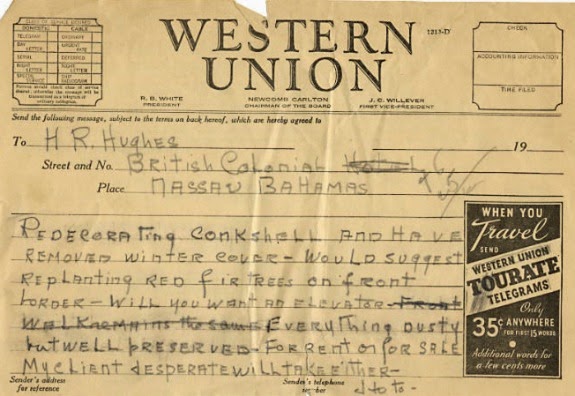 CLASS OF SERVICE DESIRED
DOMESTIC CABLE
TELEGRAM ORDINARY
DAY LETTER URGENT RATE
SERIAL DEFERRED
NIGHT LETTER NIGHT LETTER
SPECIAL SERVICE SHIP RADIOGRAM
WESTERN UNION
1217-D
R. B. WHITE
PRESIDENT
NEWCOMB CARLTON
CHAIRMAN OF THE BOARD
J. C. WILLEVER
FIRST VICE-PRESIDENT
CHECK
ACCOUNTING INFORMATION
TIME FILED
Send the following message, subject to the terms on back hereof, which are hereby agreed to
To H R. Hughes 19
Street and No. British Colonial Hotel
Place Nassau Bahamas
Redecorating Conkshell and have
removed winter cover - Would suggest
replanting red fir trees on front
border - Will you want an elevator - Front
walk remains the same Everything dusty
but well preserved - For rent or for sale
My client desperate will take either -
Sender's address for reference
Sender's telephone number
WHEN YOU
Travel
SEND
WESTERN UNION
TOURATE
TELEGRAMS
Only
35¢ ANYWHERE
FOR FIRST 15 WORDS
Additional words for
a few cents more